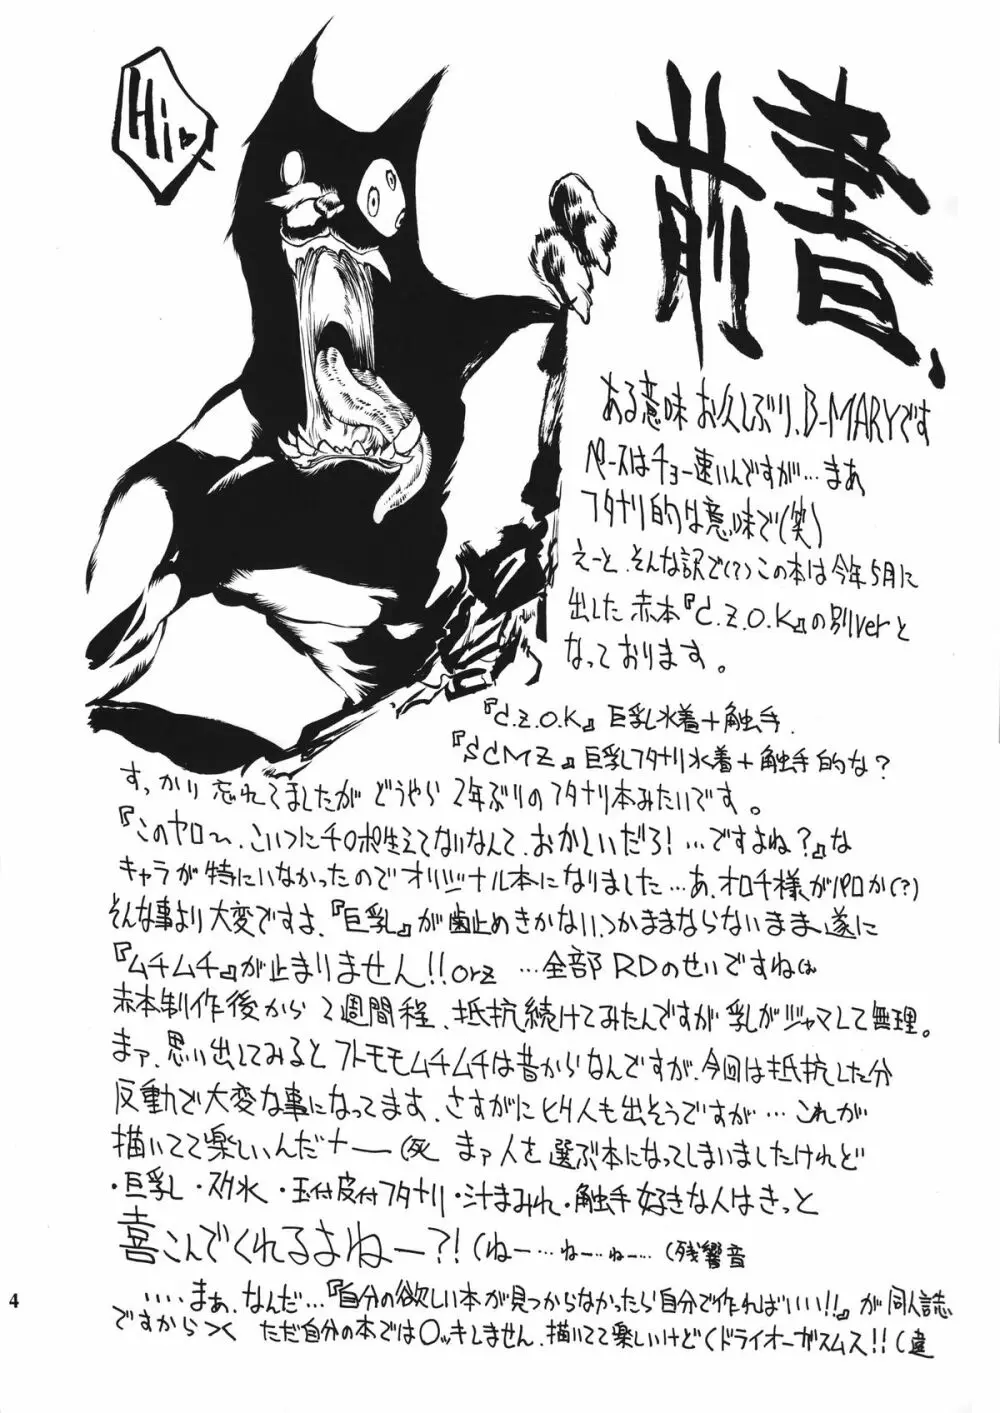 Hi♥
前書、
ある意味お久しぶり、B-MARYです
ペースはチョー速いんですが…まあ
フタナリ的な意味で(笑)
えーと、そんな訳で(?)この本は今年5月に
出した赤本『C.Z.O.K』の別verと
なっております。
『C.Z.O.K』巨乳水着+触手、
『SCMZ』巨乳フタナリ水着+触手的な?
すっかり忘れてましたがどうやら2年ぶりのフタナリ本みたいです。
『このヤロ〜、こいつにチ○ポ生えてないなんて、おかしいだろ!…ですよね?』な
キャラが特にいなかったのでオリジナル本になりました…あ、オロチ様がパロか(?)
そんな事より大変ですよ、『巨乳』が歯止めきかないっつかままならないまま遂に
『ムチムチ』が止まりません!!orz …全部RDのせいですねは
赤本制作後から2週間程、抵抗続けてみたんですが乳がジャマして無理。
まァ、思い出してみるとフトモモムチムチは昔からなんですが、今回は抵抗した分
反動で大変な事になってます、さすがにヒク人も出そうですが…これが
描いてて楽しいんだナー(死 まァ人を選ぶ本になってしまいましたけれど
・巨乳・スク水・玉付皮付フタナリ・汁まみれ・触手好きな人はきっと
喜こんでくれるよねー?!(ねー…ねー…ねー…(残響音
....まぁ、なんだ…『自分の欲しい本が見つからなかったら自分で作ればいい!!』が同人誌
ですからっく ただ自分の本では○ッキしません、描いてて楽しいけど(ドライオーガスムス!!(違
4